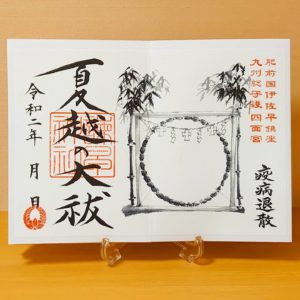 肥前国伊佐早鎮座
九州総守護四面宮
疫病退散
夏越の大祓
令和二年 月 日